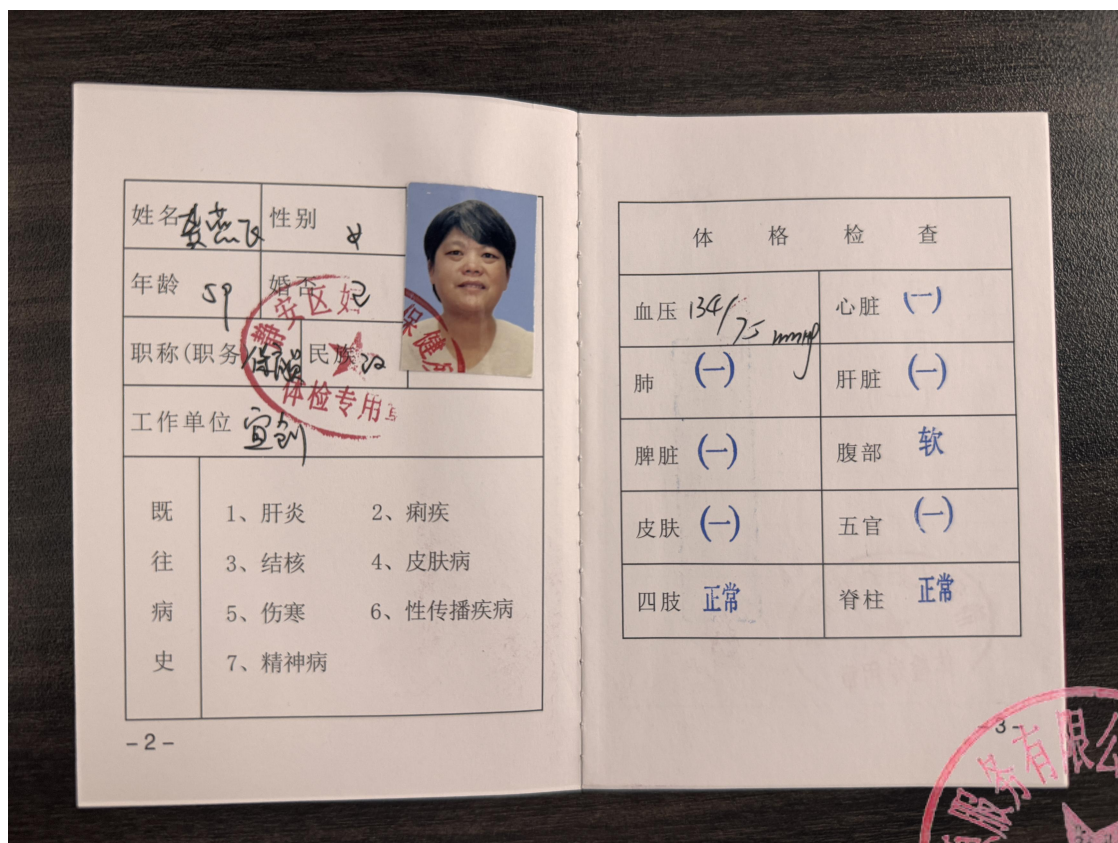 姓名 燕飞 性别 女
年龄 59 婚否 已
职称(职务) 保洁 民族 汉
工作单位 宜创
既往病史
1、肝炎 2、痢疾
3、结核 4、皮肤病
5、伤寒 6、性传播疾病
7、精神病
-2-
静安区妇 保健
体检专用
体格检查
血压 134/75 mmHg 心脏 (一)
肺 (一) 肝脏 (一)
脾脏 (一) 腹部 软
皮肤 (一) 五官 (一)
四肢 正常 脊柱 正常
-3-
服务有限公